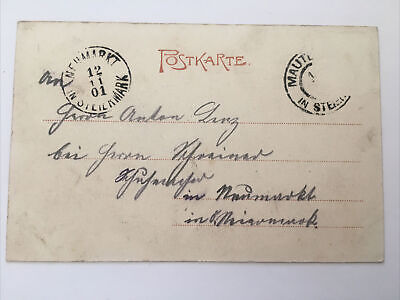 POSTKARTE.
NEUMARKT
IN STEIERMARK
12
11
01
MAUT
IN STEI
An
Herrn Anton Lenz
bei Herrn Schreiner
Schuhmacher
in Neumarkt
in Steiermark.